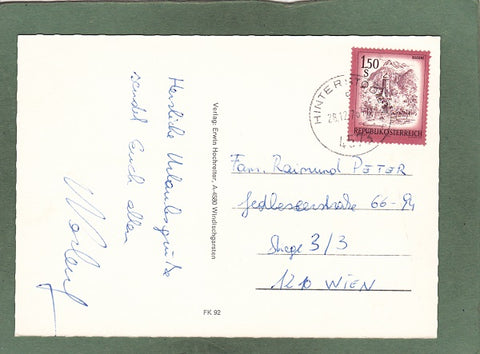 Herzliche Urlaubsgrüße
sendet Euch allen
Verlag: Erwin Hochreiter, A-4580 Windischgarsten
FK 92
1,50
S
REPUBLIK ÖSTERREICH
HINTERSTODER
4573
Fam. Raimund PETER
Jedleseerstraße 66-94
Stiege 3/3
1210 WIEN